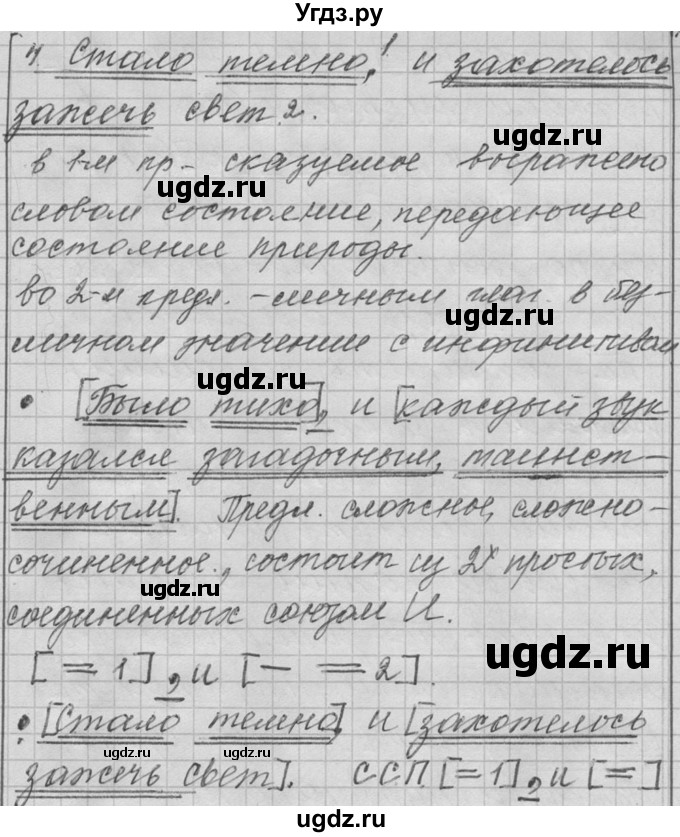 Угдз.ру
4. Стало темно,¹ и захотелось
зажечь свет 2.
ugdz.ru
в 1-м пр- сказуемое выражено
ugdz.ru
словом состояние, передающее
состояние природы.
во 2-м предл. - личным глаг. в без-
ugdz.ru
личном значении с инфинитивом
ugdz.ru
• [Было тихо], и [каждый звук
казался загадочным, таинст-
венным]. Предл. сложное, сложно-
сочиненное., состоит из 2х простых,
ugdz.ru
соединенных союзом И.
ugdz.ru
[= 1], и [— = 2].
• [Стало темно], и [захотелось
ugdz.ru
ugdz.ru
зажечь свет]. ССП [=1], и [=]
ugdz.ru